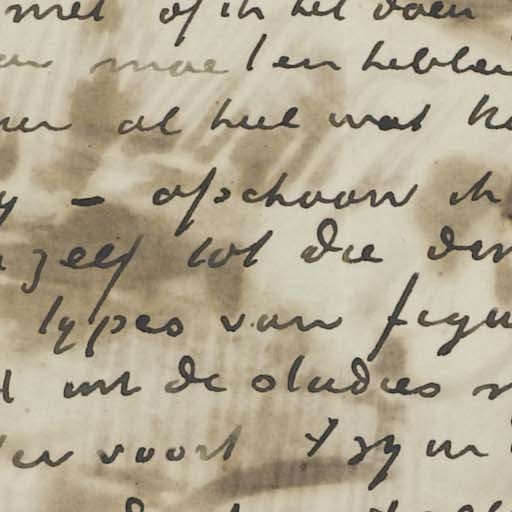 met of ik het doen
moeten hebben
al heel wat
– ofschoon ik
zelf tot die
types van figu
uit de studies
voort 't zy in